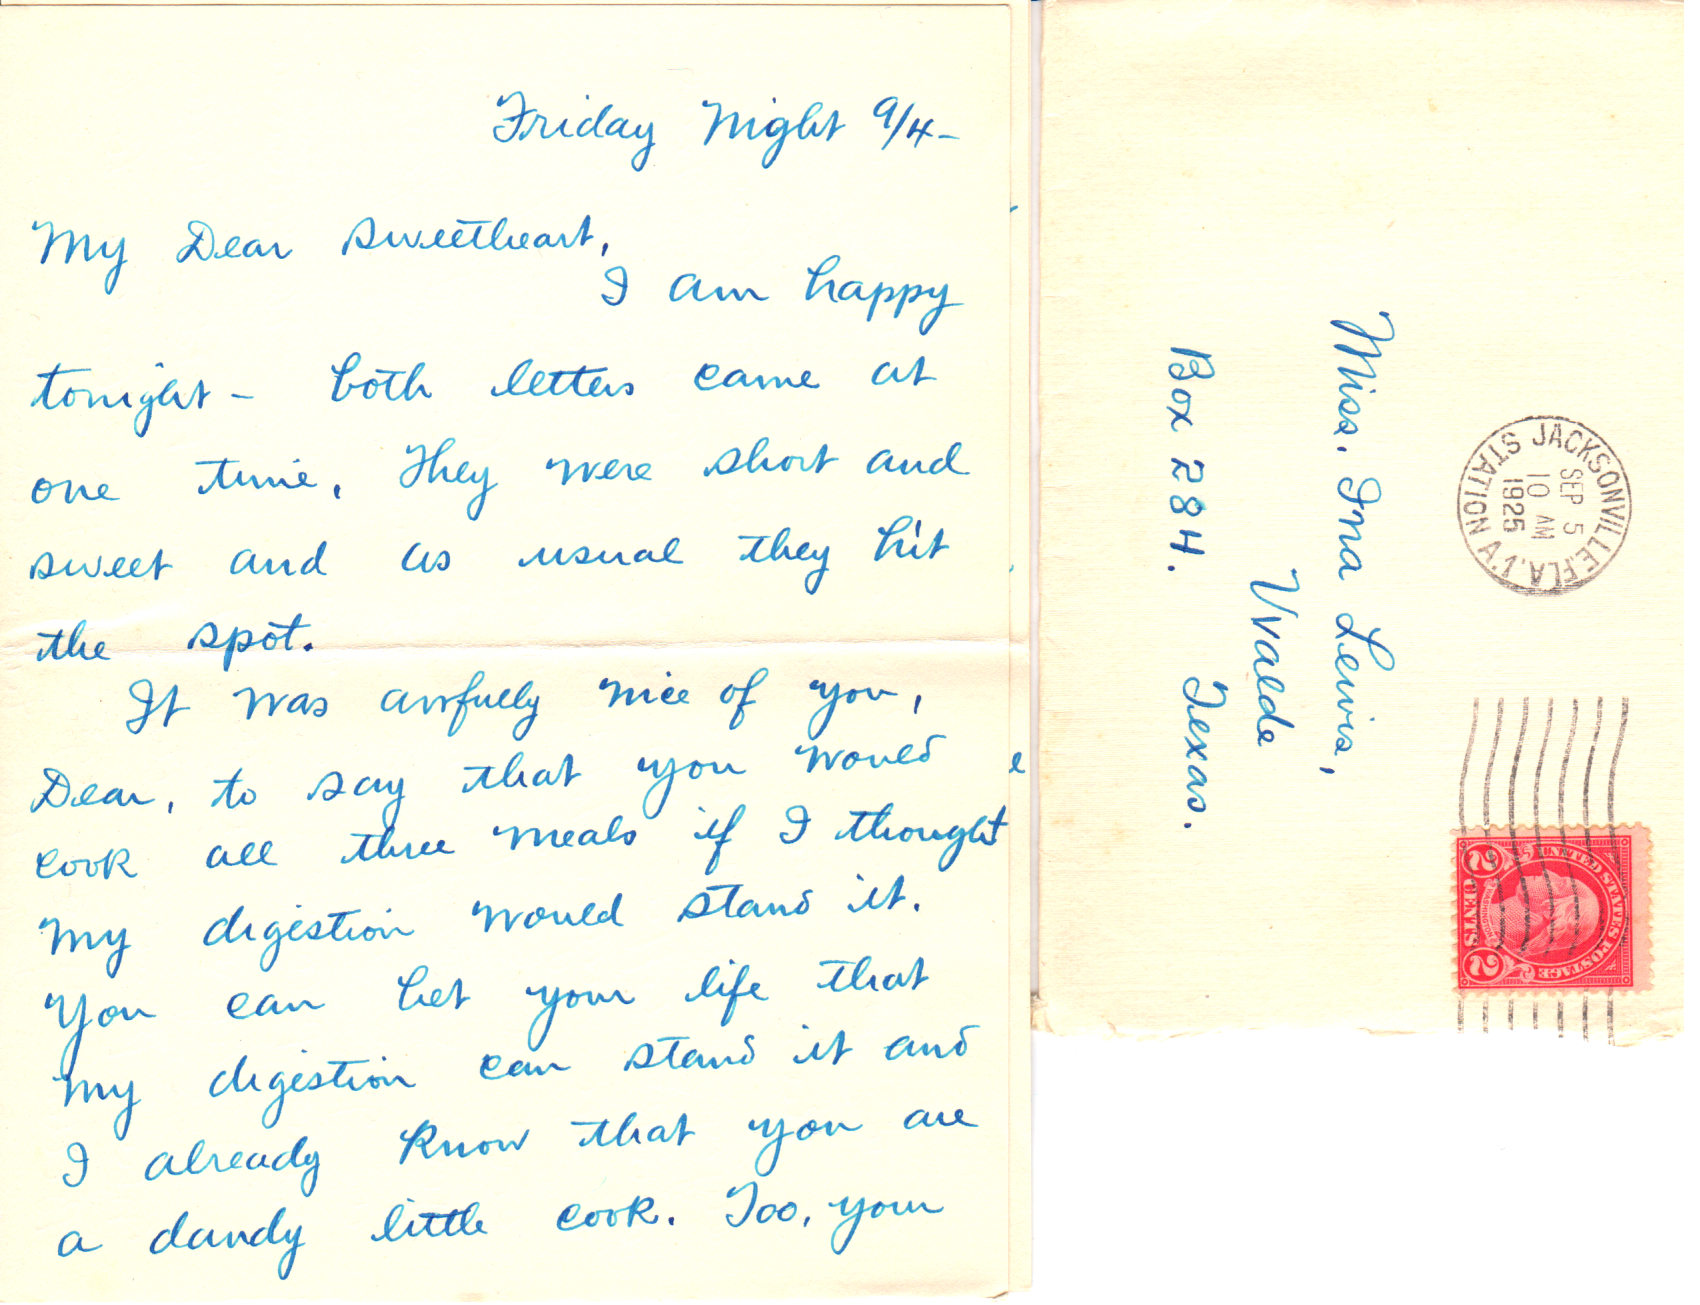 Friday Night 9/4-
My Dear Sweetheart,
I am happy
tonight - both letters came at
one time. They were short and
sweet and as usual they hit
the spot.
It was awfully nice of you,
Dear, to say that you would
cook all three meals if I thought
my digestion would stand it.
You can bet your life that
my digestion can stand it and
I already know that you are
a dandy little cook. Too, your
Miss. Ina Lewis,
Uvalde
Texas.
Box 284.
JACKSONVILLE, FLA.
STATION A.
SEP 5
10 AM
1925
UNITED STATES POSTAGE
WASHINGTON
2 CENTS 2